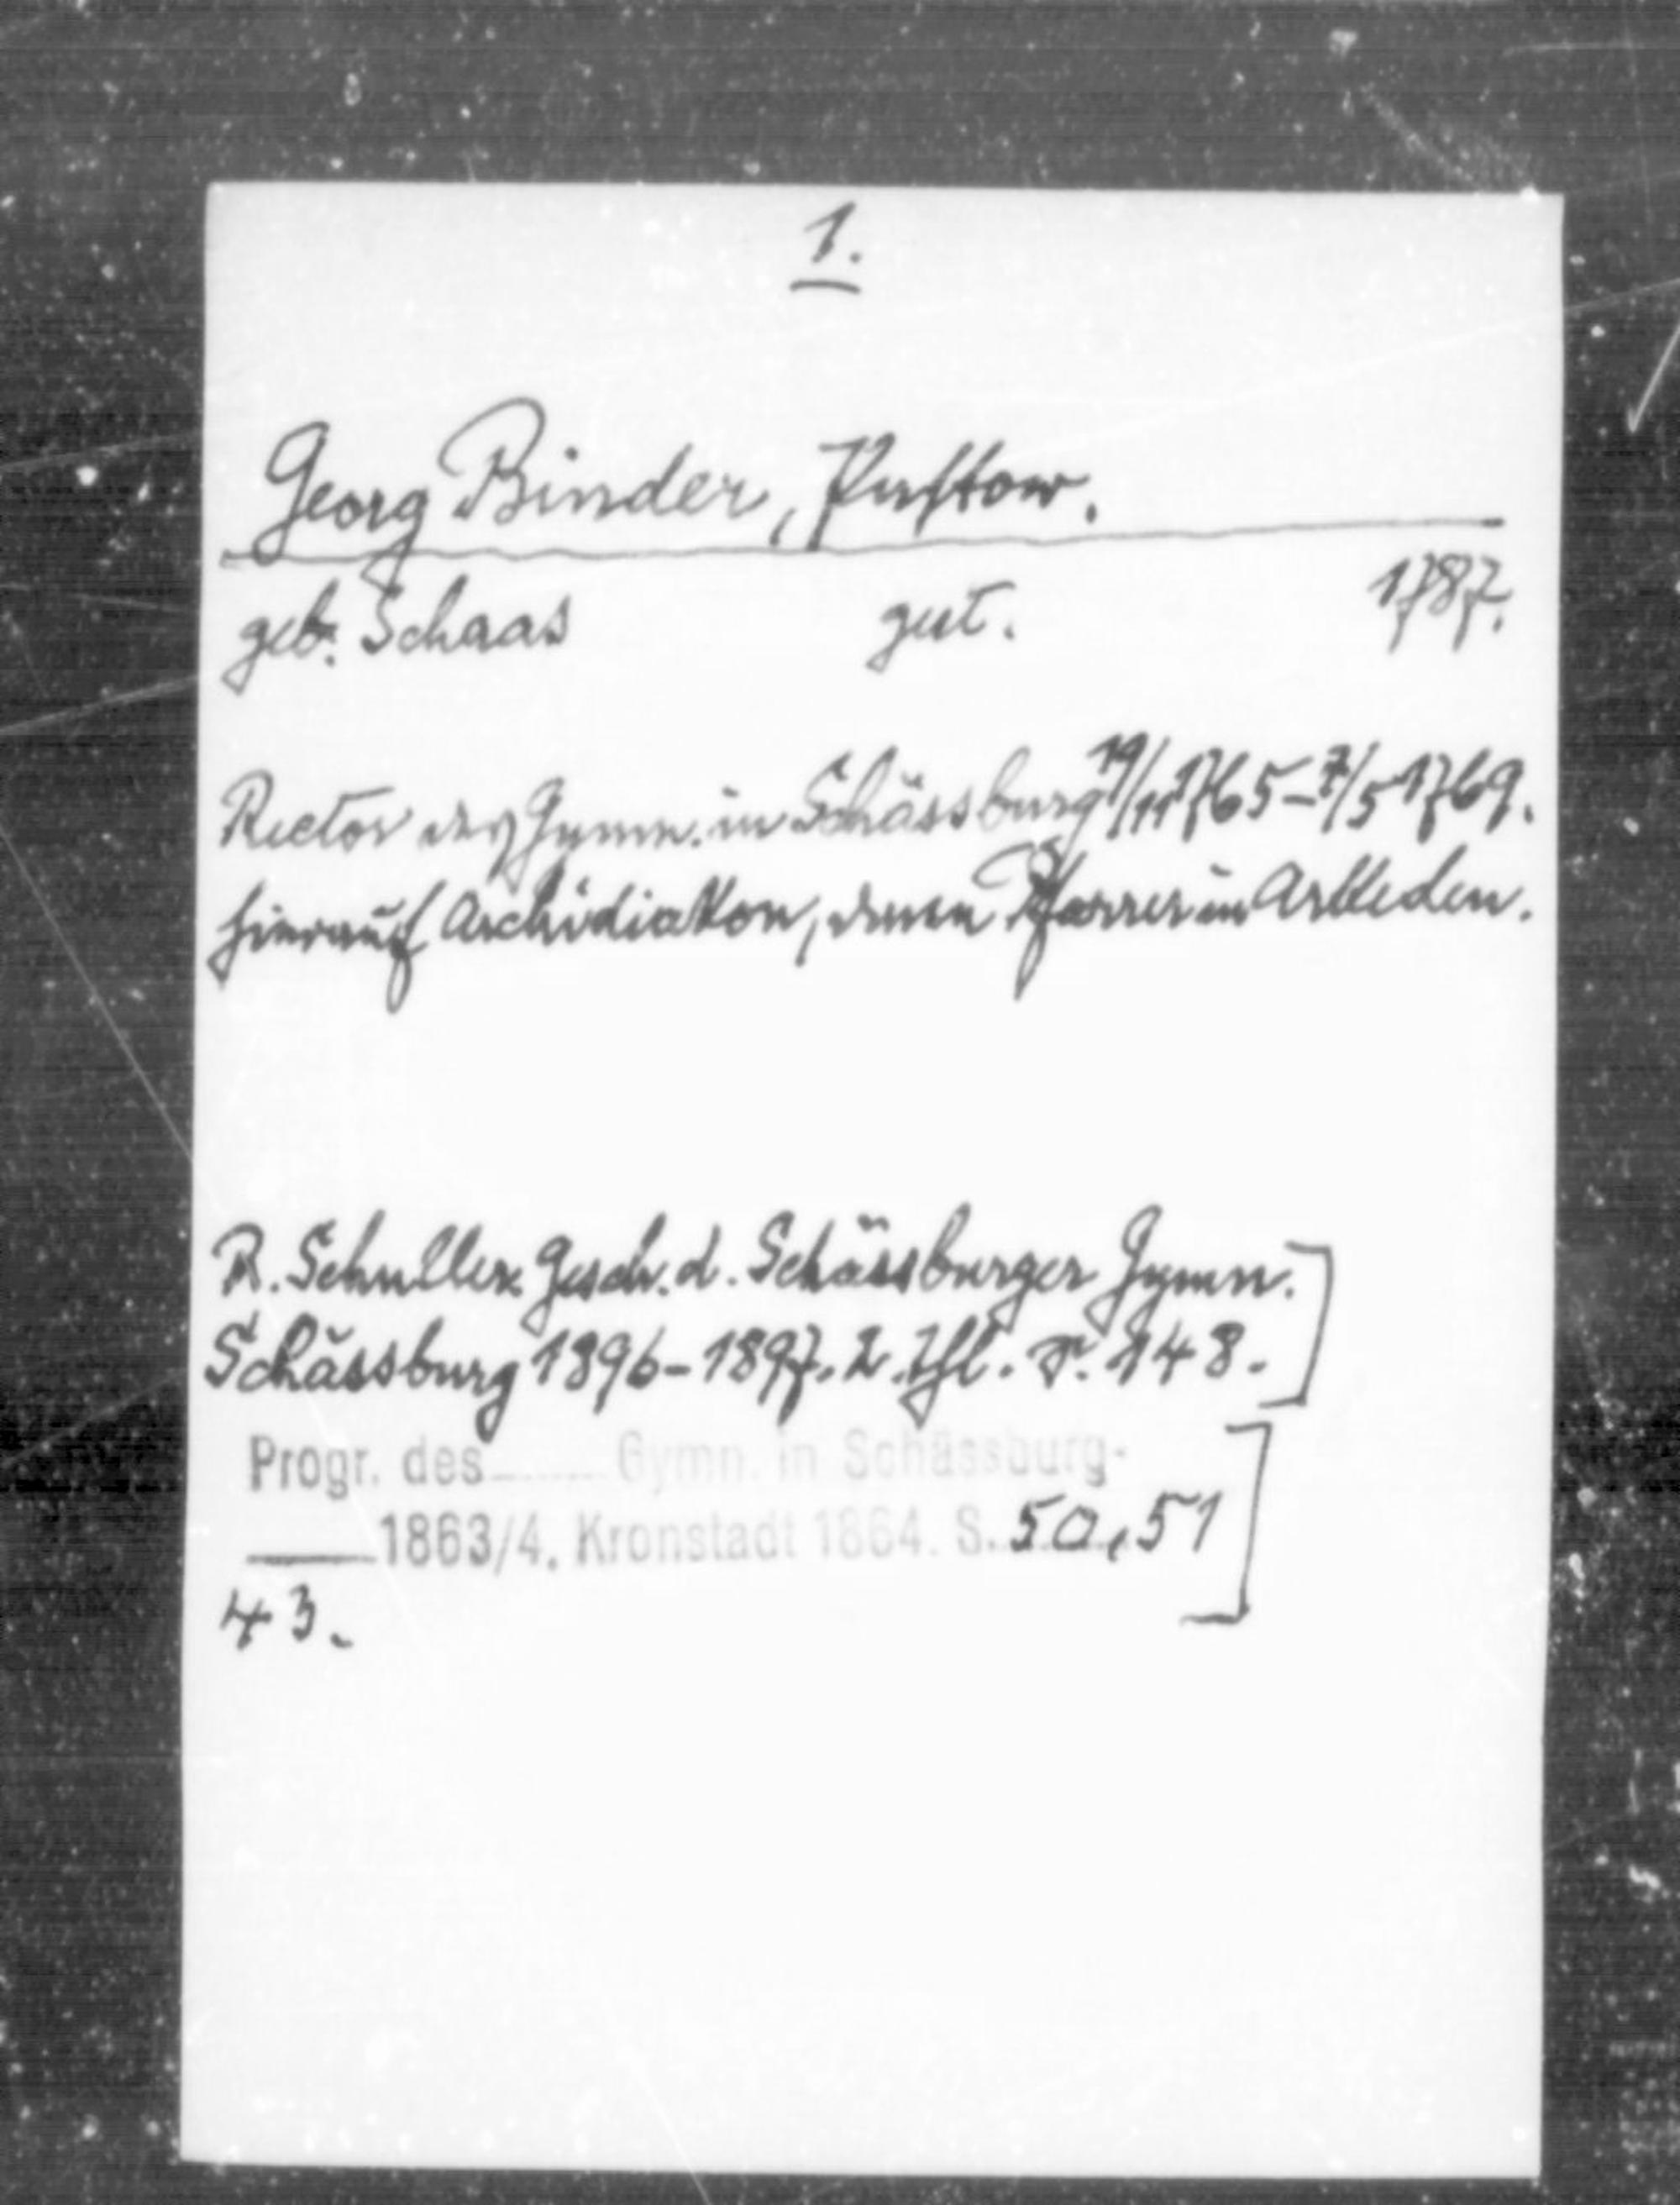 1.
Georg Binder, Pastor.
geb. Schaas gest. 1787.
Rector des Gymn. in Schässburg 19/11 1765-7/5 1769.
hierauf Archidiakon, dann Pfarrer in Arkeden.
R. Schuller. Gesch. d. Schässburger Gymn.
Schässburg 1896-1897. 2. Thl. S. 148.
Progr. des Gymn. in Schässburg-
1863/4. Kronstadt 1864. S. 50, 51
43.